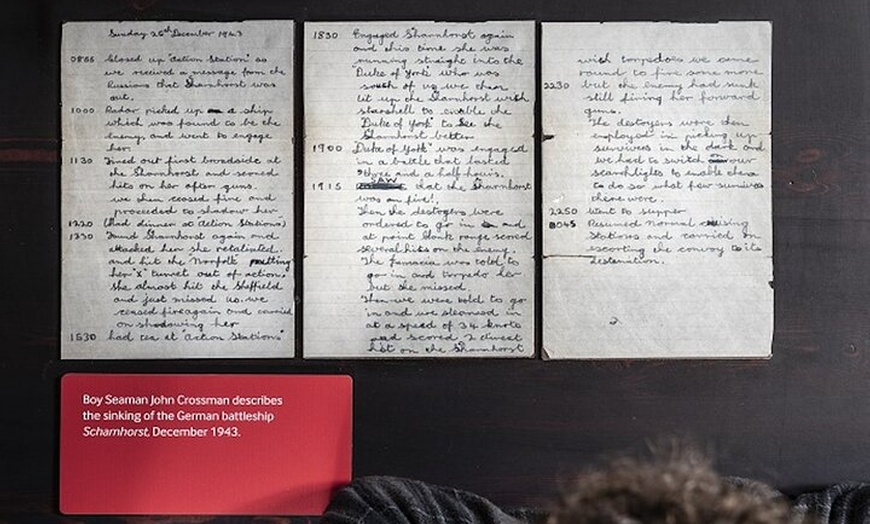 Sunday 26th December 1943
0855 Closed up "action Station" as
we received a message from the
Russians that Sharnhorst was
out.
1000 Radar picked up a ship
which was found to be the
enemy, and went to engage
her
1130 Fired out first broadside at
the Sharnhorst and scored
hits on her after guns.
we then ceased fire and
proceeded to shadow her
1220 (Had dinner at Action Stations)
1230 Found Sharnhorst again and
attacked her she retaliated.
and hit the Norfolk putting
her "X" turret out of action.
She almost hit the Sheffield
and just missed us. we
ceased fire again and carried
on shadowing her
1530 had tea at Action Stations"
1830 Engaged Sharnhorst again
and this time she was
running straight into the
"Duke of York" who was
south of us we then
lit up the Sharnhorst with
starshell to enable the
"Duke of York" to see the
Sharnhorst better
1900 "Duke of York" was engaged
in a battle that lasted
three and a half hours.
1915 saw that the Sharnhorst
was on fire!,
Then the destoyers were
ordered to go in and
at point blank range scored
several hits on the enemy.
The Jamacia was told to
go in and torpedo her
but she missed.
Then we were told to go
in and we steamed in
at a speed of 34 knots
and scored 2 direct
hit on the Sharnhorst
with torpedoes we came
round to fire some more
2230 but the enemy had sunk
still firing her forward
guns.
The destoyers were then
employed in picking up
survivers in the dark and
we had to switch on our
searchlights to enable them
to do so what few survivors
there were.
2250 Went to supper
Resumed normal cruising
Stations and carried on
escorting the convoy to its
destination.
2
Boy Seaman John Crossman describes
the sinking of the German battleship
Scharnhorst, December 1943.